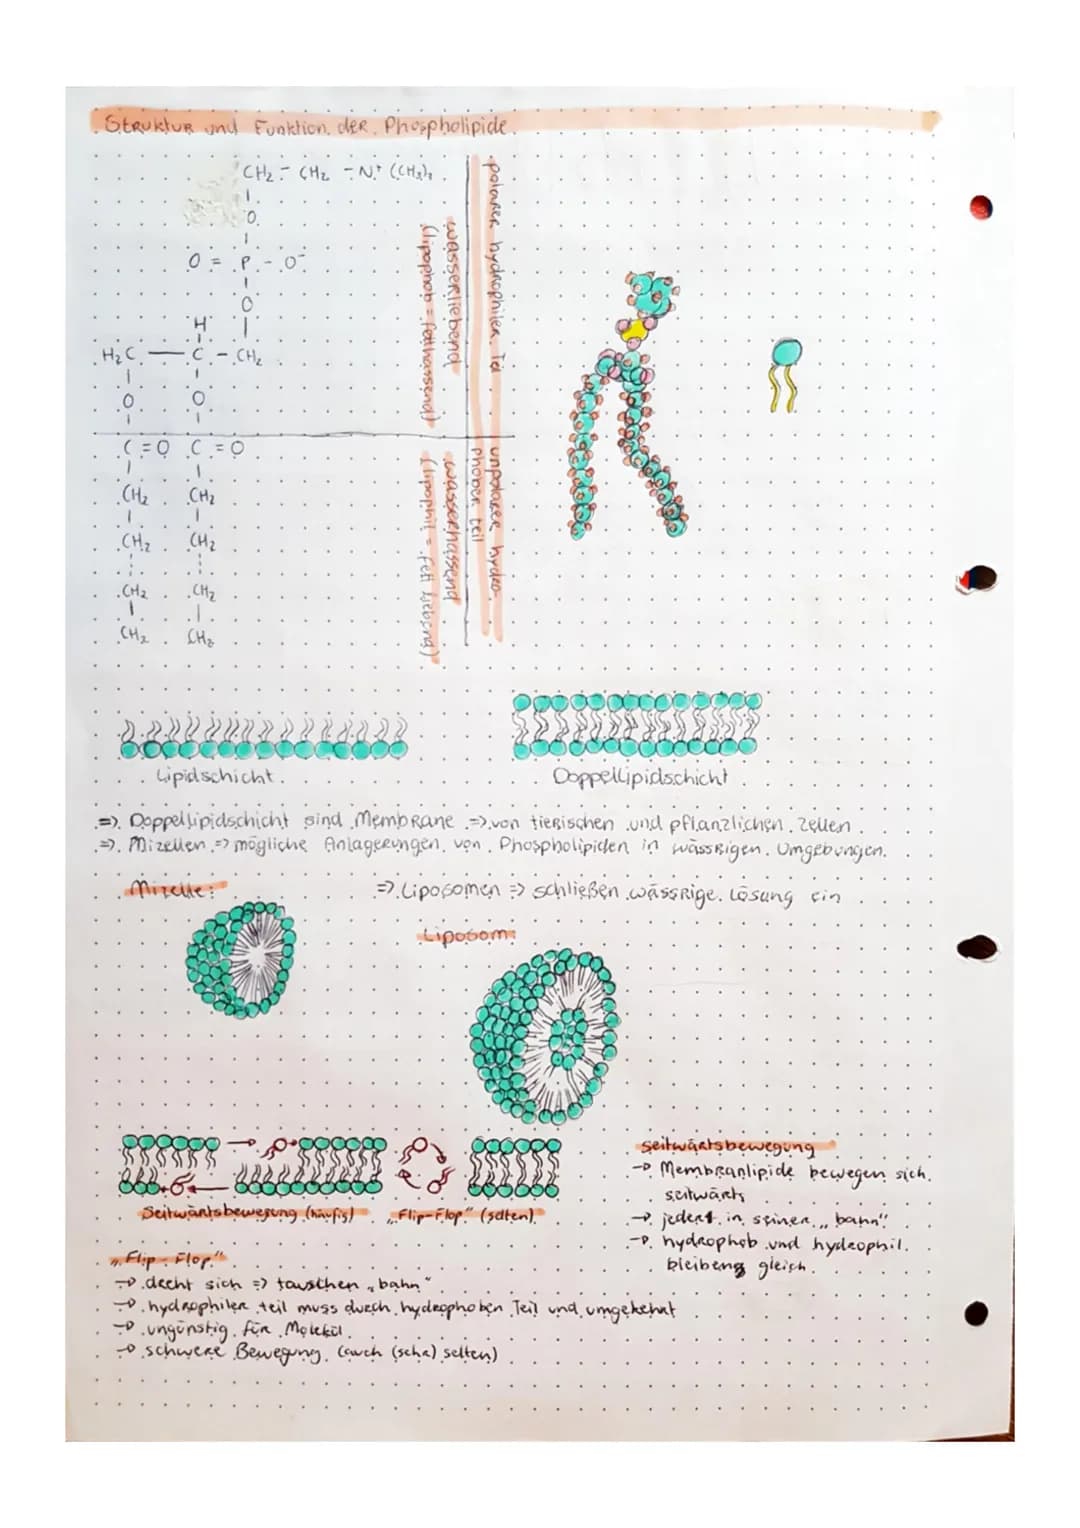 Struktur und Funktion der Phospholipide
CH₂ - CH₂ - N⁺ (CH₃)₃
O
O = P - O⁻
O
H
H₂C — C - CH₂
O O
C=O C=O
CH₂ CH₂
CH₂ CH₂
CH₂ CH₂
CH₂ CH₂
polarer hydrophiler Teil
wasserliebend
(lipophob = fetthassend)
unpolarer hydro-
phober teil
wasserhassend
(lipophil = fett liebend)
Lipidschicht
Doppellipidschicht
=> Doppellipidschicht sind Membrane => von tierischen und pflanzlichen Zellen
=> Mizellen => mögliche Anlagerungen von Phospholipiden in wässrigen Umgebungen.
Mizelle:
=> Liposomen => schließen wässrige Lösung ein
Liposom:
Seitwärtsbewegung (häufig)
„Flip-Flop" (selten)
Seitwärtsbewegung
→ Membranlipide bewegen sich
seitwärts
→ in seiner „bahn"
→ hydrophob und hydrophil
gleich
„Flip-Flop"
→ dreht sich => tauschen „bahn"
→ hydrophiler teil muss durch hydrophoben Teil und umgekehrt
→ ungünstig für Molekül
→ schwere Bewegung (auch (sehr) selten)